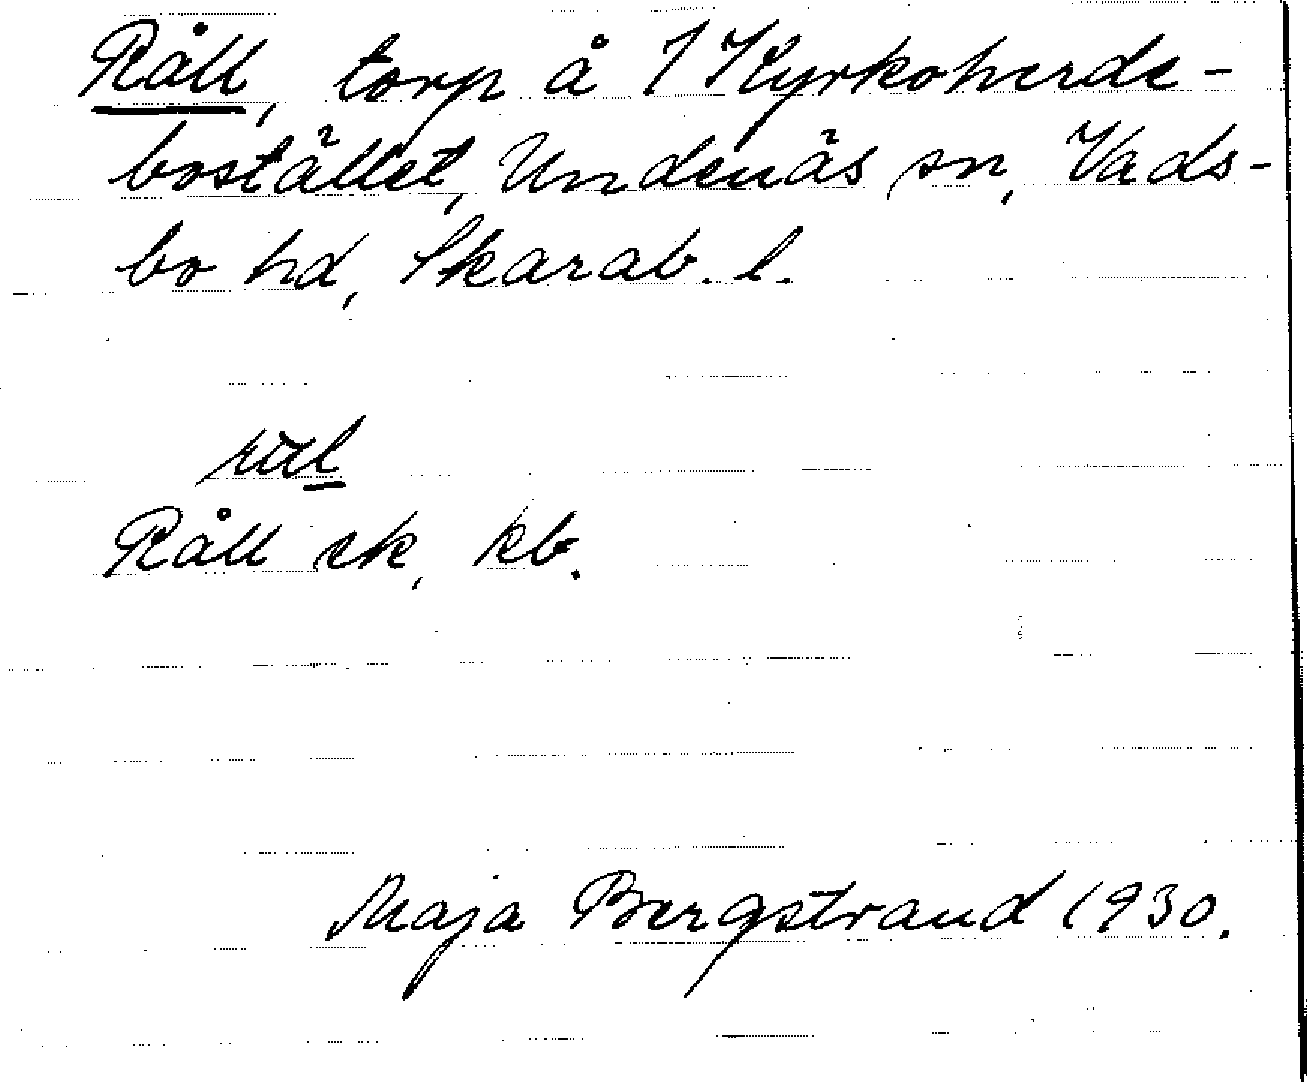 Råll, torp å 1 Kyrkoherde-
bostället, Undenäs sn, Vads-
bo hd, Skarab. l.
Råll ek, kb.
Maja Bergstrand 1930.